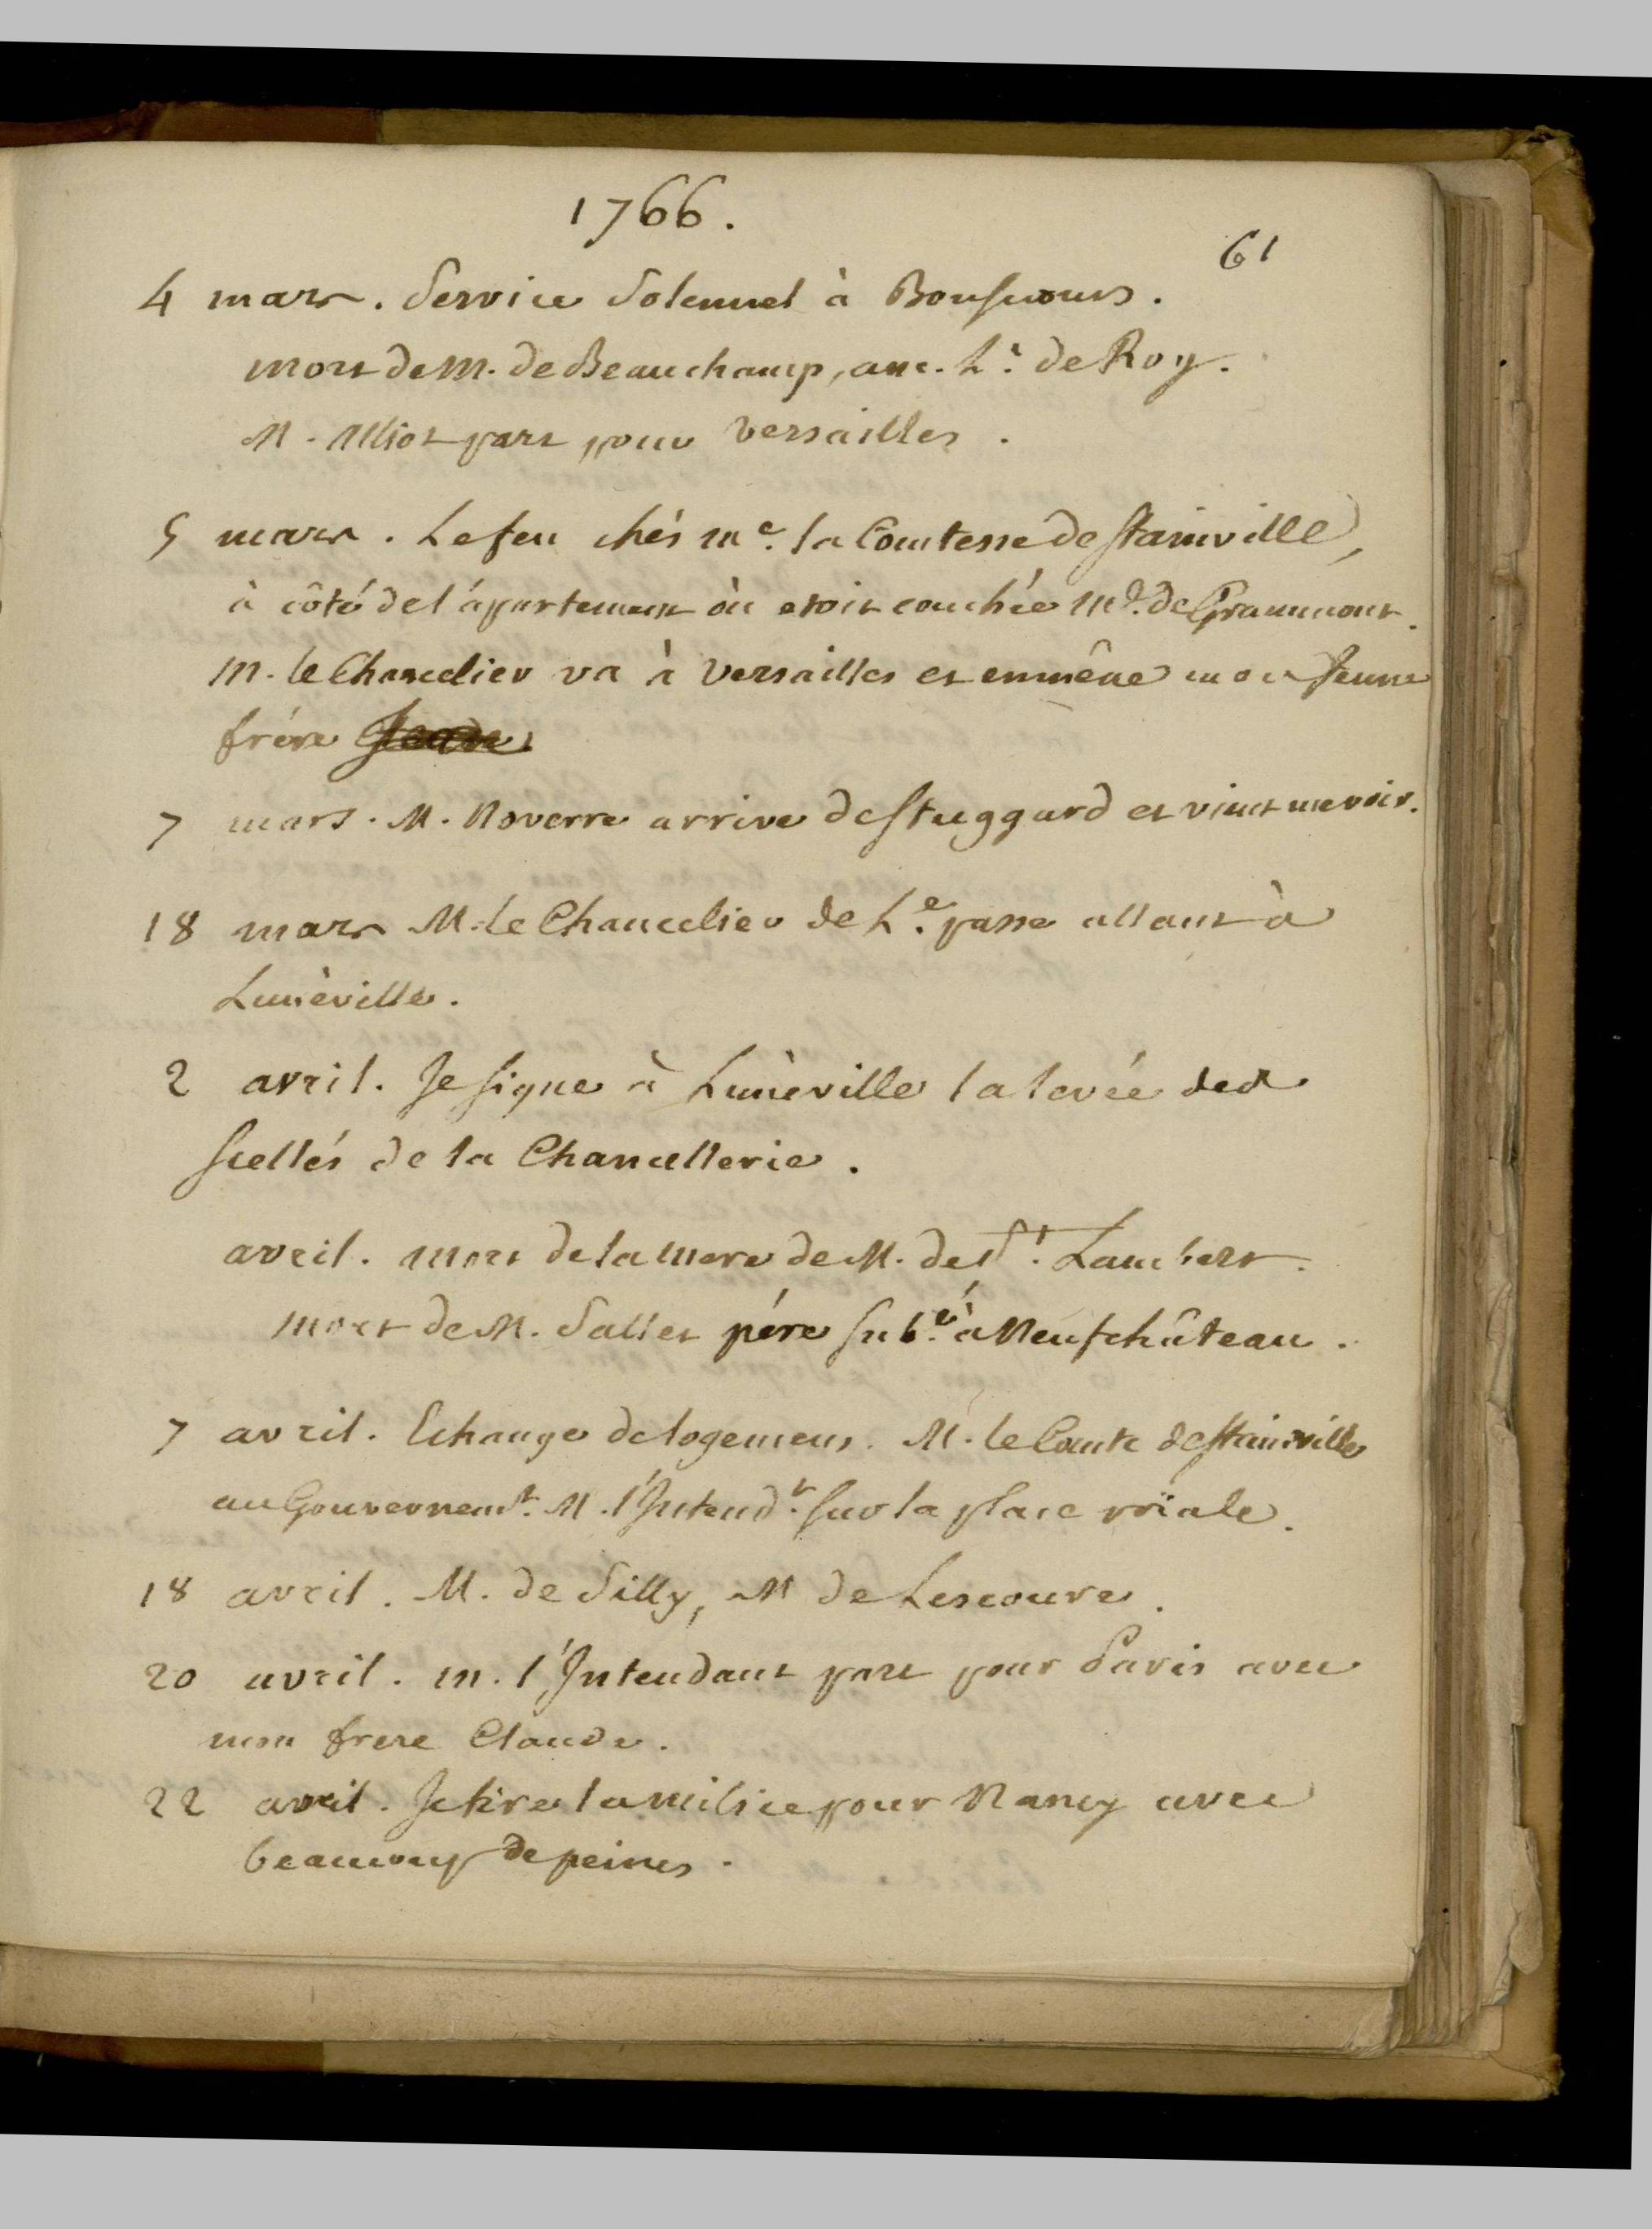 1766.
61
4 mars. Service Solennel à Bonsecours.
mort de M. de Beauchamp, anc. Lt. de Roy.
M. Alliot part pour Versailles.
5 mars. Le feu chés Me. la Comtesse de Stainville,
à côté de l'ápartement òu etoit couchée Md. de Grammont.
M. le Chancelier va à Versailles et emmêne mon Jeune
frére
7 mars. M. Noverre arrive de Stuggard et vient me voir.
18 mars M. le Chancelier de Le. passe allant à
Lunèville.
2 avril. Je signe à Lunèville la levée des
scellés de la Chancellerie.
avril. mort de la Mere de M. de St. Lambert.
mort de M. Sallet pére sub.é à Neufchâteau.
7 avril. Echange de logemens. M. le Comte de Stainville
au Gouvernemt. M. l'Intendt. sur la place roïale.
18 avril. M. de Silly, M de Lescoure.
20 avril. M. l'Intendant part pour Paris avec
mon frere Claude.
22 avril. Je tire la milice pour Nancy avec
beaucoup de peines.